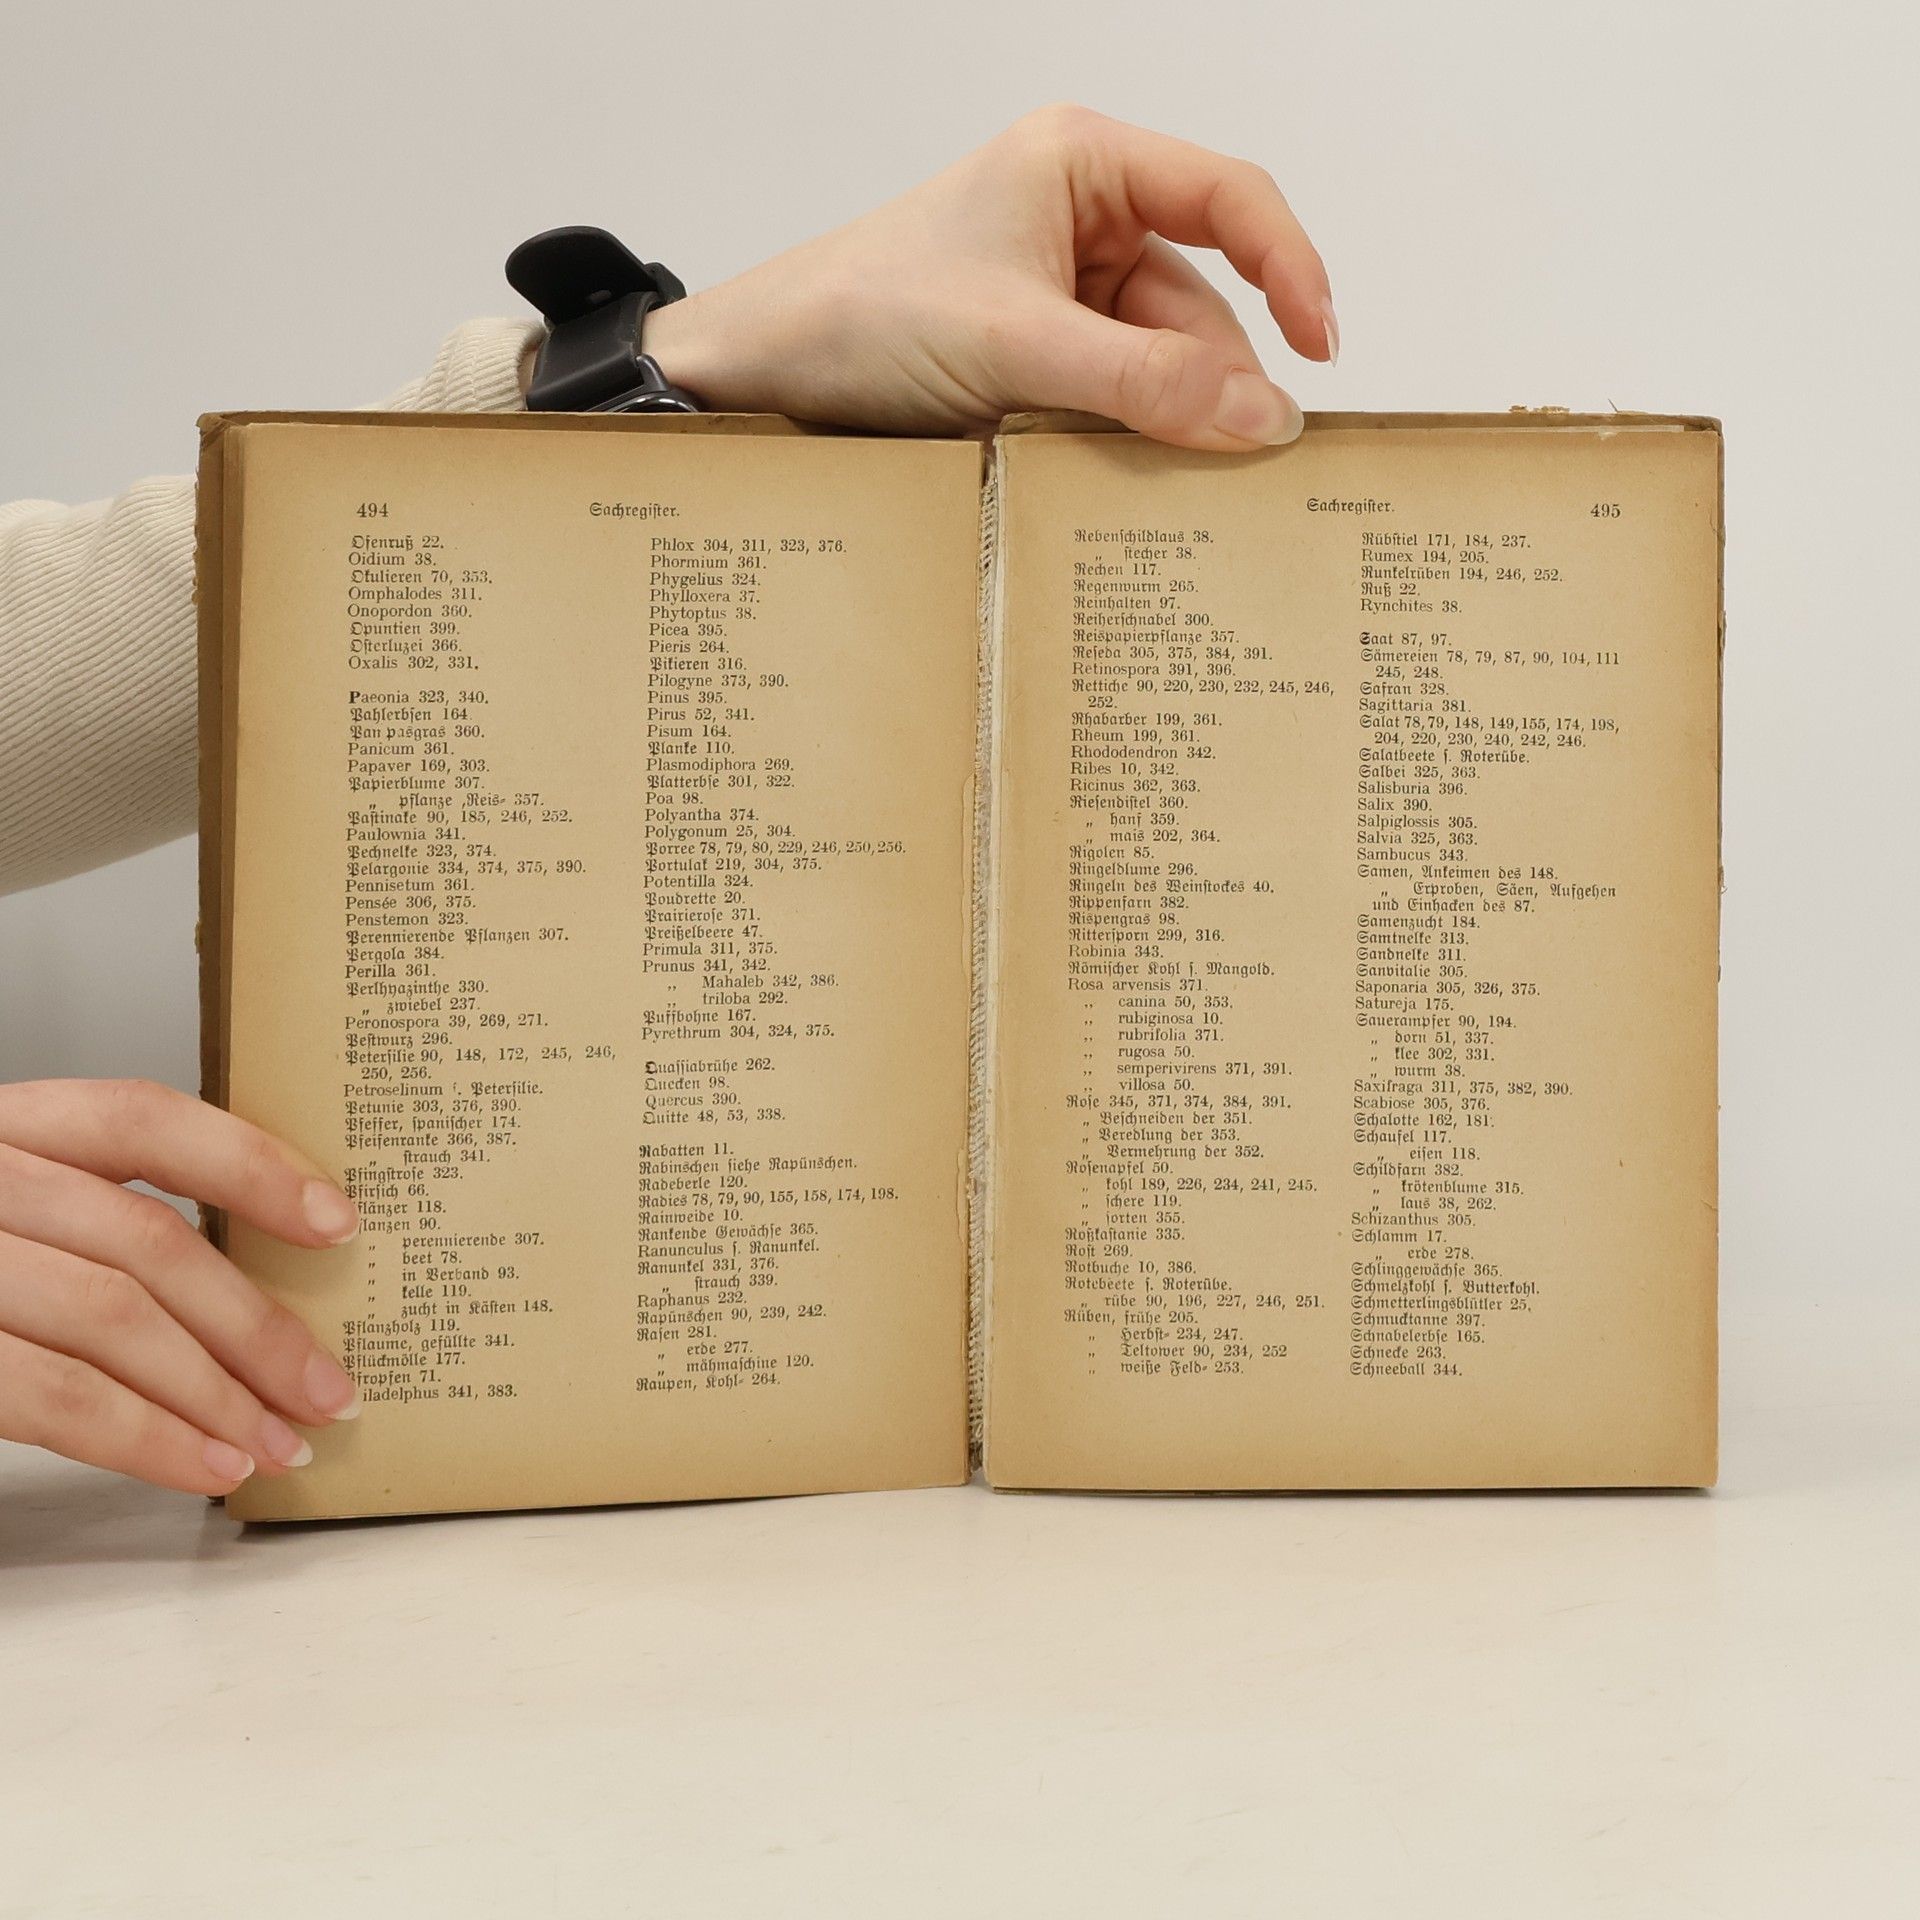 494 Sachregister.
Ofenruß 22.
Oidium 38.
Okulieren 70, 353.
Omphalodes 311.
Onopordon 360.
Opuntien 399.
Osterluzei 366.
Oxalis 302, 331.
Paeonia 323, 340.
Pahlerbsen 164.
Pampasgras 360.
Panicum 361.
Papaver 169, 303.
Papierblume 307.
„ pflanze ,Reis- 357.
Pastinake 90, 185, 246, 252.
Paulownia 341.
Pechnelke 323, 374.
Pelargonie 334, 374, 375, 390.
Pennisetum 361.
Pensée 306, 375.
Penstemon 323.
Perennierende Pflanzen 307.
Pergola 384.
Perilla 361.
Perlhyazinthe 330.
„ zwiebel 237.
Peronospora 39, 269, 271.
Pestwurz 296.
Petersilie 90, 148, 172, 245, 246,
250, 256.
Petroselinum s. Petersilie.
Petunie 303, 376, 390.
Pfeffer, spanischer 174.
Pfeifenranke 366, 387.
„ strauch 341.
Pfingstrose 323.
Pfirsich 66.
flänzer 118.
flanzen 90.
„ perennierende 307.
„ beet 78.
„ in Verband 93.
„ kelle 119.
„ zucht in Kästen 148.
Pflanzholz 119.
Pflaume, gefüllte 341.
Pflückmölle 177.
Pfropfen 71.
iladelphus 341, 383.
Phlox 304, 311, 323, 376.
Phormium 361.
Phygelius 324.
Phylloxera 37.
Phytoptus 38.
Picea 395.
Pieris 264.
Pikieren 316.
Pilogyne 373, 390.
Pinus 395.
Pirus 52, 341.
Pisum 164.
Planke 110.
Plasmodiphora 269.
Platterbse 301, 322.
Poa 98.
Polyantha 374.
Polygonum 25, 304.
Porree 78, 79, 80, 229, 246, 250, 256.
Portulak 219, 304, 375.
Potentilla 324.
Poudrette 20.
Prairierose 371.
Preißelbeere 47.
Primula 311, 375.
Prunus 341, 342.
„ Mahaleb 342, 386.
„ triloba 292.
Puffbohne 167.
Pyrethrum 304, 324, 375.
Quassiabrühe 262.
Quecken 98.
Quercus 390.
Quitte 48, 53, 338.
Rabatten 11.
Rabinschen siehe Rapünschen.
Radeberle 120.
Radies 78, 79, 90, 155, 158, 174, 198.
Rainweide 10.
Rankende Gewächse 365.
Ranunculus s. Ranunkel.
Ranunkel 331, 376.
„ strauch 339.
Raphanus 232.
Rapünschen 90, 239, 242.
Rasen 281.
„ erde 277.
„ mähmaschine 120.
Raupen, Kohl- 264.
Sachregister. 495
Rebenschildlaus 38.
„ stecher 38.
Rechen 117.
Regenwurm 265.
Reinhalten 97.
Reiherschnabel 300.
Reispapierpflanze 357.
Reseda 305, 375, 384, 391.
Retinospora 391, 396.
Rettiche 90, 220, 230, 232, 245, 246,
252.
Rhabarber 199, 361.
Rheum 199, 361.
Rhododendron 342.
Ribes 10, 342.
Ricinus 362, 363.
Riesendistel 360.
„ hanf 359.
„ mais 202, 364.
Rigolen 85.
Ringeldlume 296.
Ringeln des Weinstockes 40.
Rippenfarn 382.
Rispengras 98.
Rittersporn 299, 316.
Robinia 343.
Römischer Kohl s. Mangold.
Rosa arvensis 371.
„ canina 50, 353.
„ rubiginosa 10.
„ rubrifolia 371.
„ rugosa 50.
„ semperivirens 371, 391.
„ villosa 50.
Rose 345, 371, 374, 384, 391.
„ Beschneiden der 351.
„ Veredlung der 353.
„ Vermehrung der 352.
Rosenapfel 50.
„ kohl 189, 226, 234, 241, 245.
„ schere 119.
„ sorten 355.
Roßkastanie 335.
Rost 269.
Rotbuche 10, 386.
Rotebeete s. Roterübe.
„ rübe 90, 196, 227, 246, 251.
Rüben, frühe 205.
„ Herbst- 234, 247.
„ Teltower 90, 234, 252
„ weiße Feld- 253.
Rübstiel 171, 184, 237.
Rumex 194, 205.
Runkelrüben 194, 246, 252.
Ruß 22.
Rynchites 38.
Saat 87, 97.
Sämereien 78, 79, 87, 90, 104, 111
245, 248.
Safran 328.
Sagittaria 381.
Salat 78, 79, 148, 149, 155, 174, 198,
204, 220, 230, 240, 242, 246.
Salatbeete s. Roterübe.
Salbei 325, 363.
Salisburia 396.
Salix 390.
Salpiglossis 305.
Salvia 325, 363.
Sambucus 343.
Samen, Ankeimen des 148.
„ Erproben, Säen, Aufgehen
und Einhacken des 87.
Samenzucht 184.
Samtnelke 313.
Sandnelke 311.
Sanvitalie 305.
Saponaria 305, 326, 375.
Satureja 175.
Sauerampfer 90, 194.
„ dorn 51, 337.
„ klee 302, 331.
„ wurm 38.
Saxifraga 311, 375, 382, 390.
Scabiose 305, 376.
Schalotte 162, 181.
Schaufel 117.
„ eisen 118.
Schildfarn 382.
„ krötenblume 315.
„ laus 38, 262.
Schizanthus 305.
Schlamm 17.
„ erde 278.
Schlinggewächse 365.
Schmelzkohl s. Butterkohl.
Schmetterlingsblütler 25,
Schmucktanne 397.
Schnabelerbse 165.
Schnecke 263.
Schneeball 344.